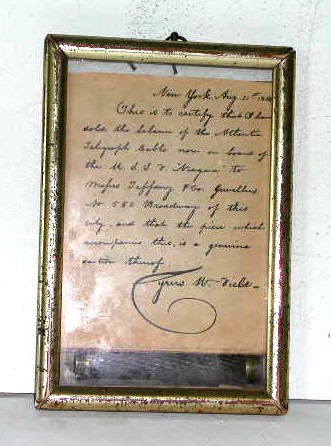 New York, Aug. 21st 1858
This is to certify that I have
sold the balance of the Atlantic
Telegraph Cable now on board of
the U. S. S. F. Niagara to
Messrs Tiffany & Co. Jewellers
No 550 Broadway of this
city, and that the piece which
accompanies this, is a genuine
section thereof.
Cyrus W. Field